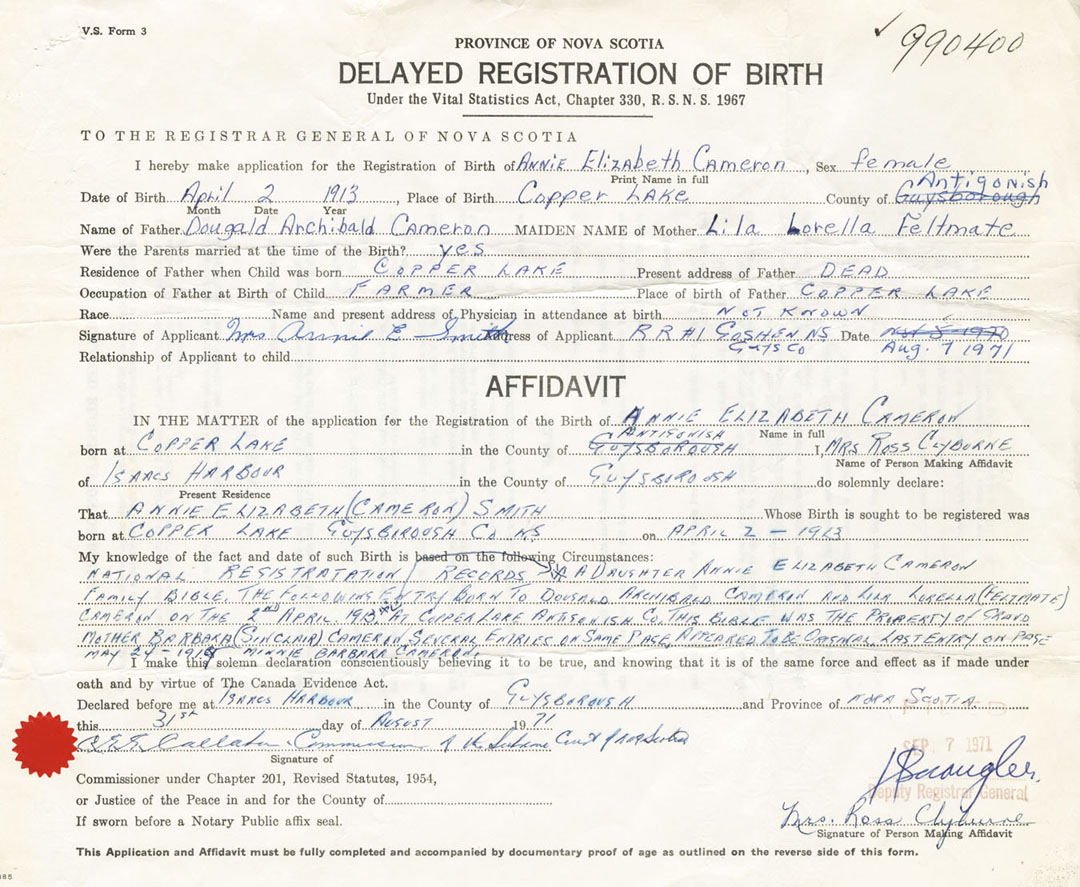 V.S. Form 3
990400
PROVINCE OF NOVA SCOTIA
DELAYED REGISTRATION OF BIRTH
Under the Vital Statistics Act, Chapter 330, R.S.N.S. 1967
TO THE REGISTRAR GENERAL OF NOVA SCOTIA
I hereby make application for the Registration of Birth of Annie Elizabeth Cameron, Sex female
Print Name in full
Antigonish
Date of Birth April 2 1913, Place of Birth Copper Lake County of Guysborough
Month Date Year
Name of Father Dougald Archibald Cameron MAIDEN NAME of Mother Lila Lorella Feltmate
Were the Parents married at the time of the Birth? yes
Residence of Father when Child was born COPPER LAKE Present address of Father DEAD
Occupation of Father at Birth of Child FARMER Place of birth of Father COPPER LAKE
Race Name and present address of Physician in attendance at birth NOT KNOWN
Signature of Applicant Mrs Annie E Smith Address of Applicant RR#1 GOSHEN NS Date Nov 5 1970
GUYS CO Aug. 7 1971
Relationship of Applicant to child
AFFIDAVIT
IN THE MATTER of the application for the Registration of the Birth of ANNIE ELIZABETH CAMERON
ANTIGONISH Name in full
born at COPPER LAKE in the County of GUYSBOROUGH I, MRS ROSS CLYBURNE
Name of Person Making Affidavit
of ISAACS HARBOUR in the County of GUYSBOROUGH do solemnly declare:
Present Residence
That ANNIE ELIZABETH (CAMERON) SMITH Whose Birth is sought to be registered was
born at COPPER LAKE GUYSBOROUGH CO NS on APRIL 2 - 1913
My knowledge of the fact and date of such Birth is based on the following Circumstances:
NATIONAL REGISTRATATION RECORDS A DAUGHTER ANNIE ELIZABETH CAMERON
FAMILY BIBLE, THE FOLLOWING ENTRY BORN TO DOUGALD ARCHIBALD CAMERON AND LILA LORELLA (FELTMATE)
CAMERON ON THE 2ND APRIL 1913 AT COPPER LAKE ANTIGONISH CO. THIS BIBLE WAS THE PROPERTY OF GRAND
MOTHER BARBARA (SINCLAIR) CAMERON. SEVERAL ENTRIES ON SAME PAGE, APPEARED TO BE ORIGINAL. LAST ENTRY ON PAGE
MAY 29-191 MINNIE BARBARA CAMERON.
I make this solemn declaration conscientiously believing it to be true, and knowing that it is of the same force and effect as if made under
oath and by virtue of The Canada Evidence Act.
Declared before me at ISAACS HARBOUR in the County of GUYSBOROUGH and Province of NOVA SCOTIA
this 31st day of AUGUST 1971
Commissioner of the Supreme Court of Nova Scotia
SEP 7 1971
Signature of
Commissioner under Chapter 201, Revised Statutes, 1954,
Deputy Registrar General
or Justice of the Peace in and for the County of
Mrs. Ross Clyburne
If sworn before a Notary Public affix seal.
Signature of Person Making Affidavit
This Application and Affidavit must be fully completed and accompanied by documentary proof of age as outlined on the reverse side of this form.